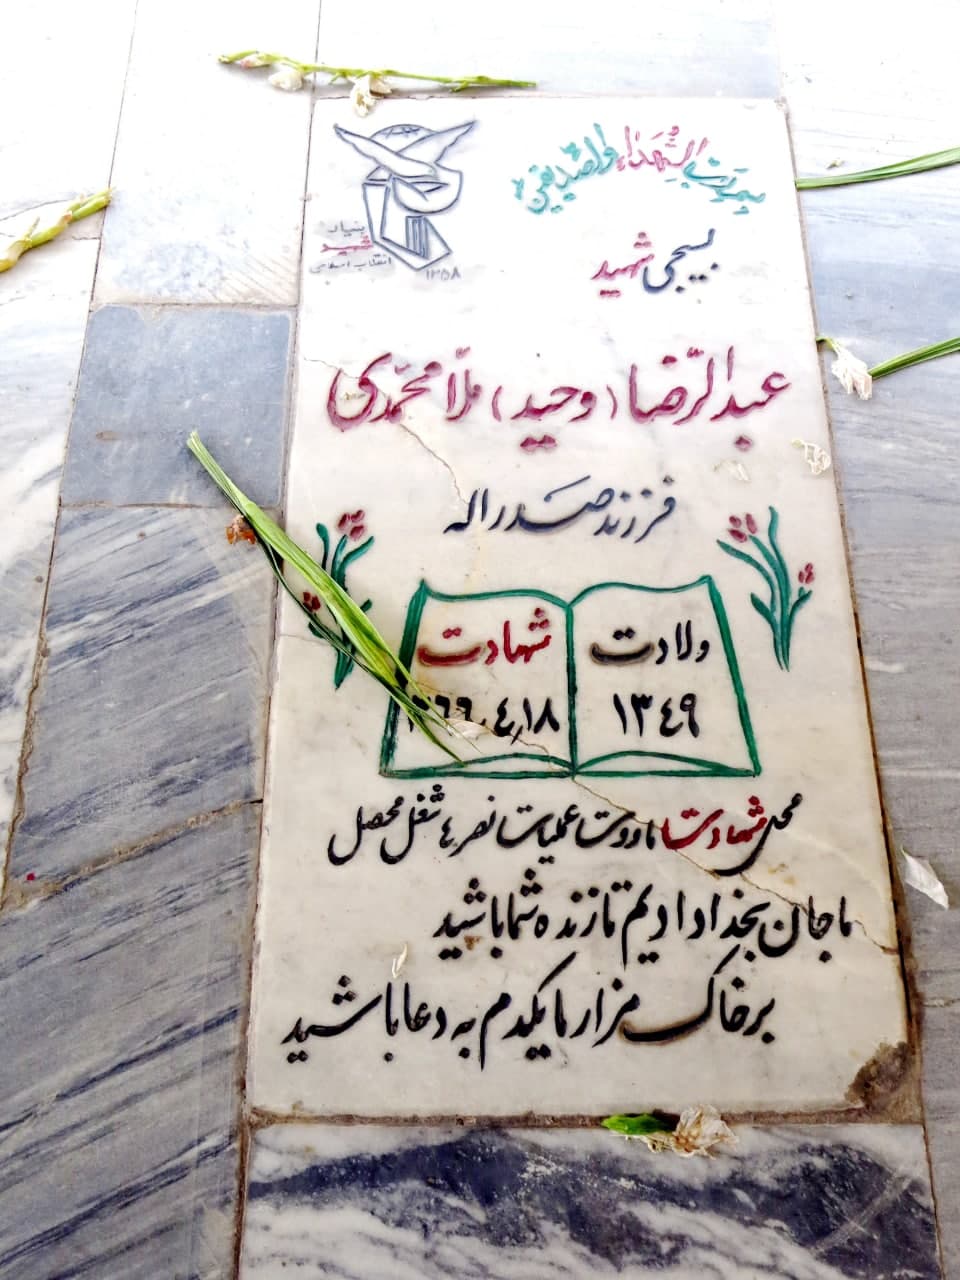 بسم رب الشهداء والصدیقین
بنیاد
شهید
انقلاب اسلامی
۱۳۵۸
بسیجی شهید
عبدالرّضا (وحید) ملّامحمّدی
فرزند صدراله
ولادت
۱۳۴۹
شهادت
۱۳۶۶,۴,۱۸
محل شهادت ماووت عملیات نصر۴ شغل محصل
ما جان بخدا دادیم تا زنده شما باشید
برخاک مزار ما یکدم به دعا باشید